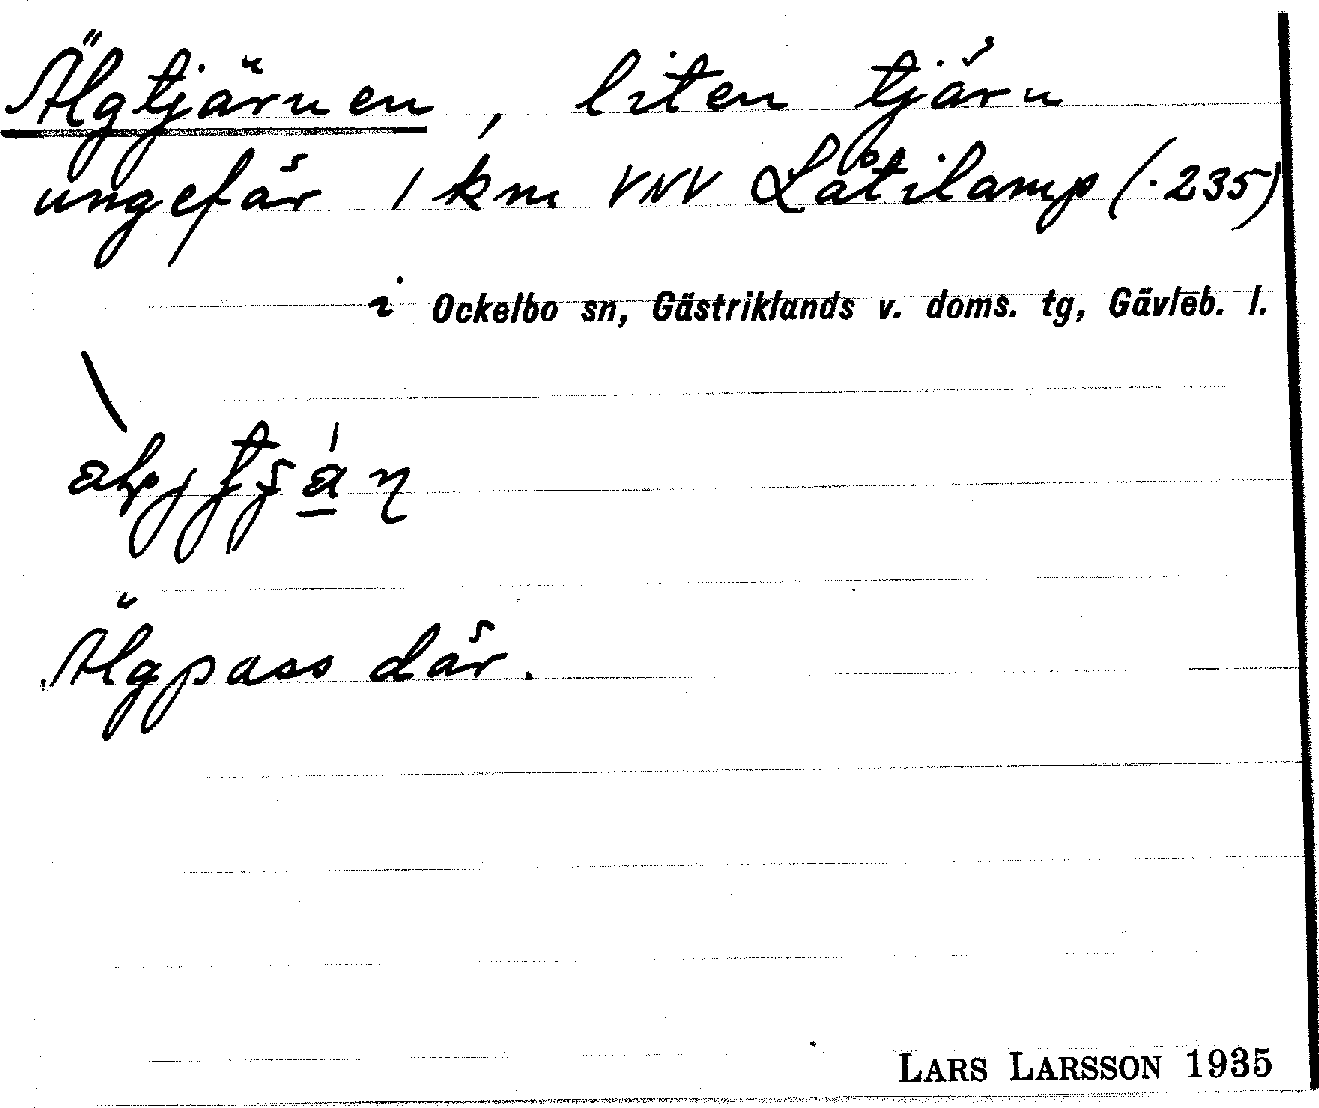 Älgtjärnen, liten tjärn
ungefär 1 km VNV Låtilamp (.235)
i Ockelbo sn, Gästriklands v. doms. tg, Gävleb. l.
Älgpass där.
LARS LARSSON 1935